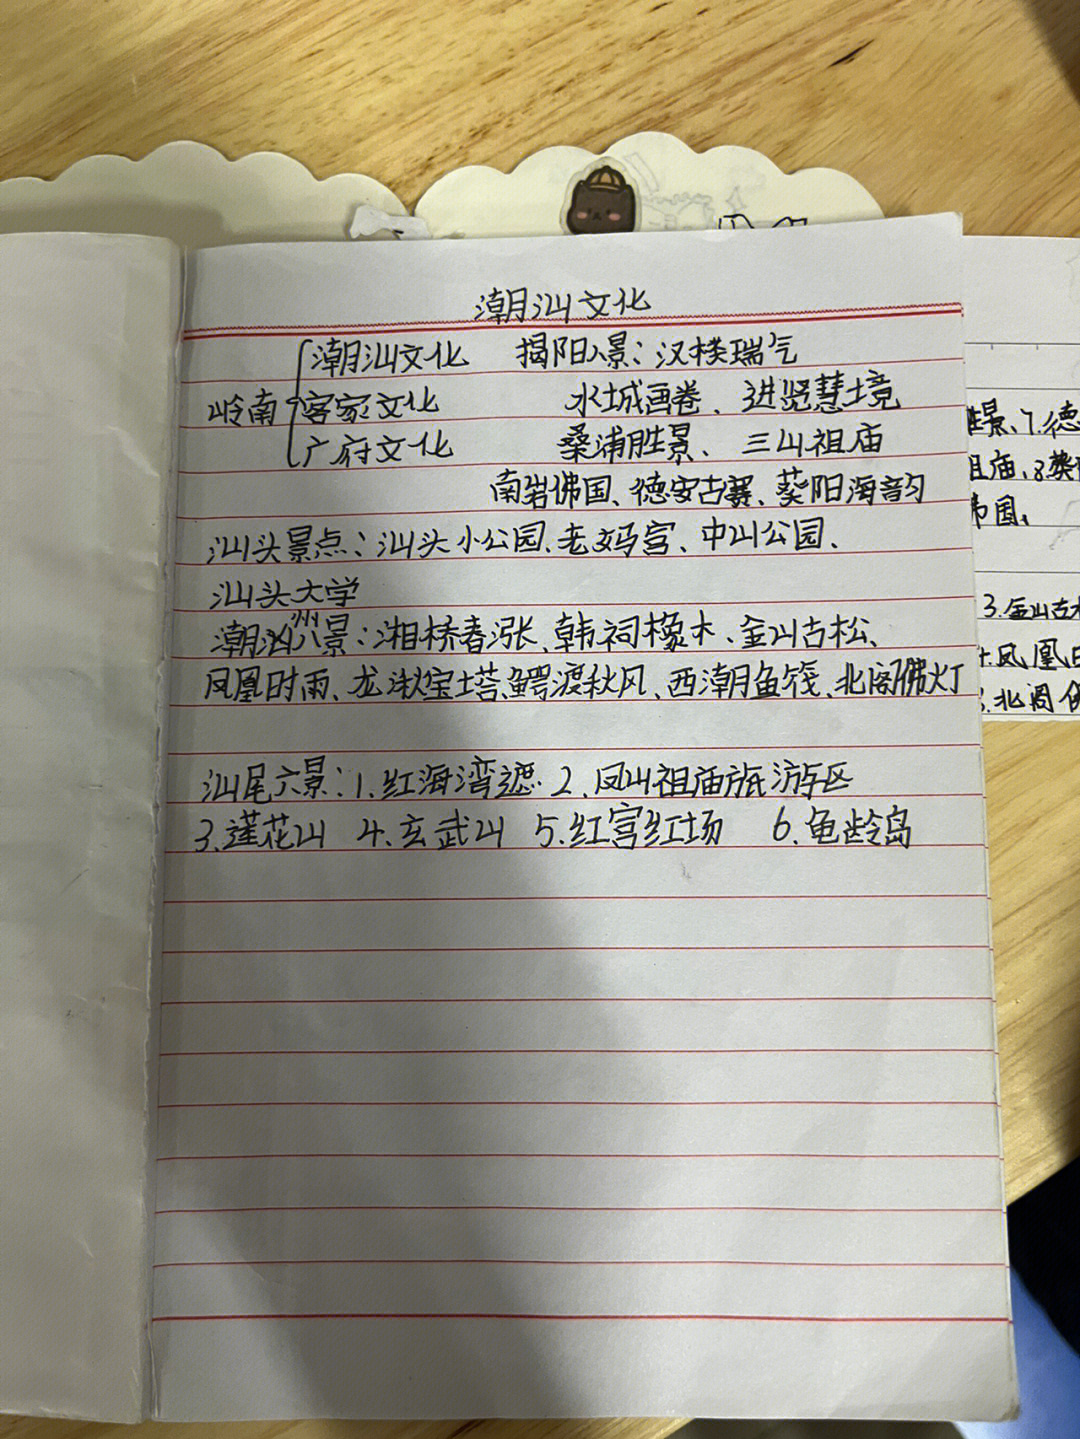 潮汕文化
潮汕文化 揭阳八景：汉楼瑞气
岭南 客家文化 水城画卷、进贤慧境
广府文化 桑浦胜景、三山祖庙
南岩佛国、德安古寨、葵阳海韵
汕头景点：汕头小公园、老妈宫、中山公园、
汕头大学
潮州八景：湘桥春涨、韩祠橡木、金山古松、
凤凰时雨、龙湫宝塔、鳄渡秋风、西湖鱼筏、北阁佛灯
汕尾六景：1.红海湾遮 2.凤山祖庙旅游区
3.莲花山 4.玄武山 5.红宫红场 6.龟龄岛
胜景、7.德
祖庙、8.葵阳
佛国、
3.金山古木
4.凤凰时
8.北阁佛